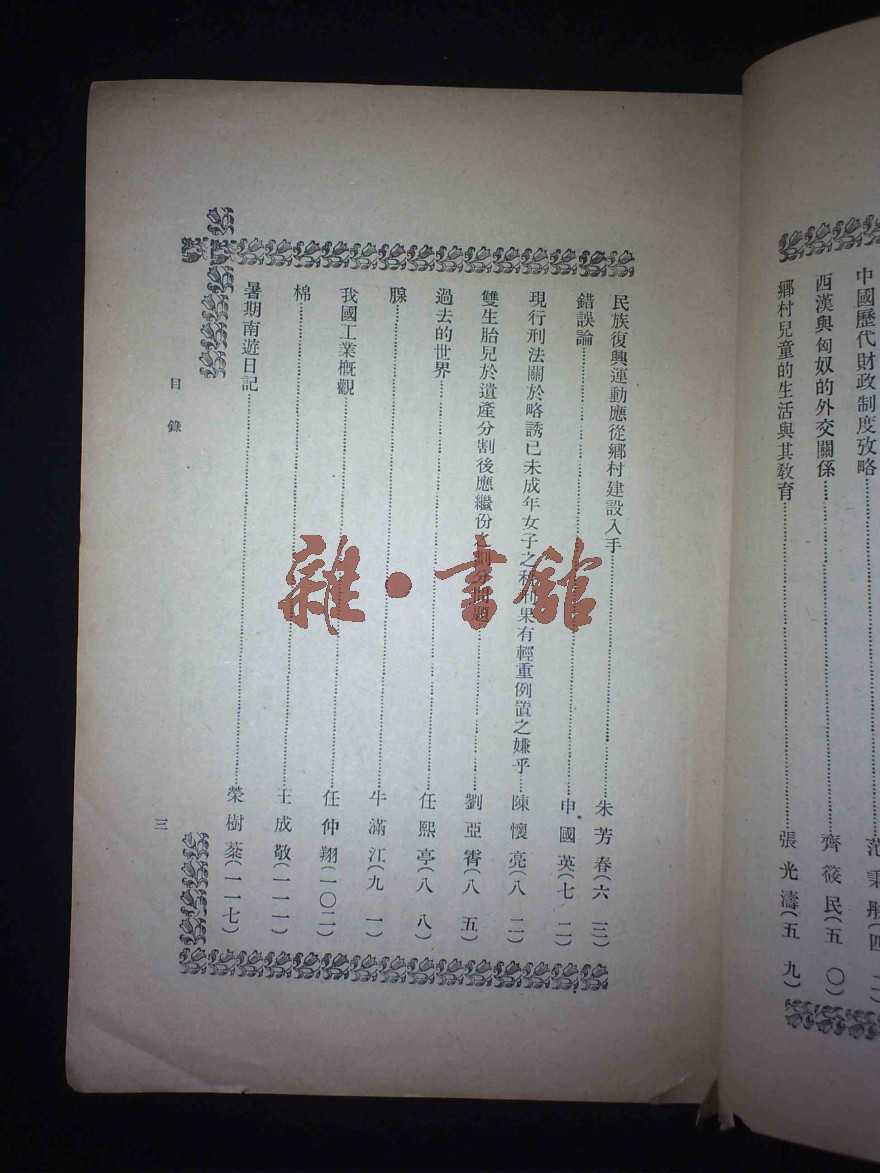 中國歷代財政制度攷略
西漢與匈奴的外交關係……齊筱民(五〇)
鄉村兒童的生活與其教育……張光濤(五九)
民族復興運動應從鄉村建設入手……朱芳春(六三)
錯誤論……申國英(七二)
現行刑法關於略誘已未成年女子之科刑果有輕重例置之嫌乎……陳懷亮(八二)
雙生胎兒於遺產分割後應繼份之劃分問題……劉亞霄(八五)
過去的世界……任熙亭(八八)
腺……牛滿江(九一)
我國工業概觀……任仲翔(一〇二)
棉……王成敬(一一一)
暑期南遊日記……榮樹棻(一一七)
目錄
三
雜·書館